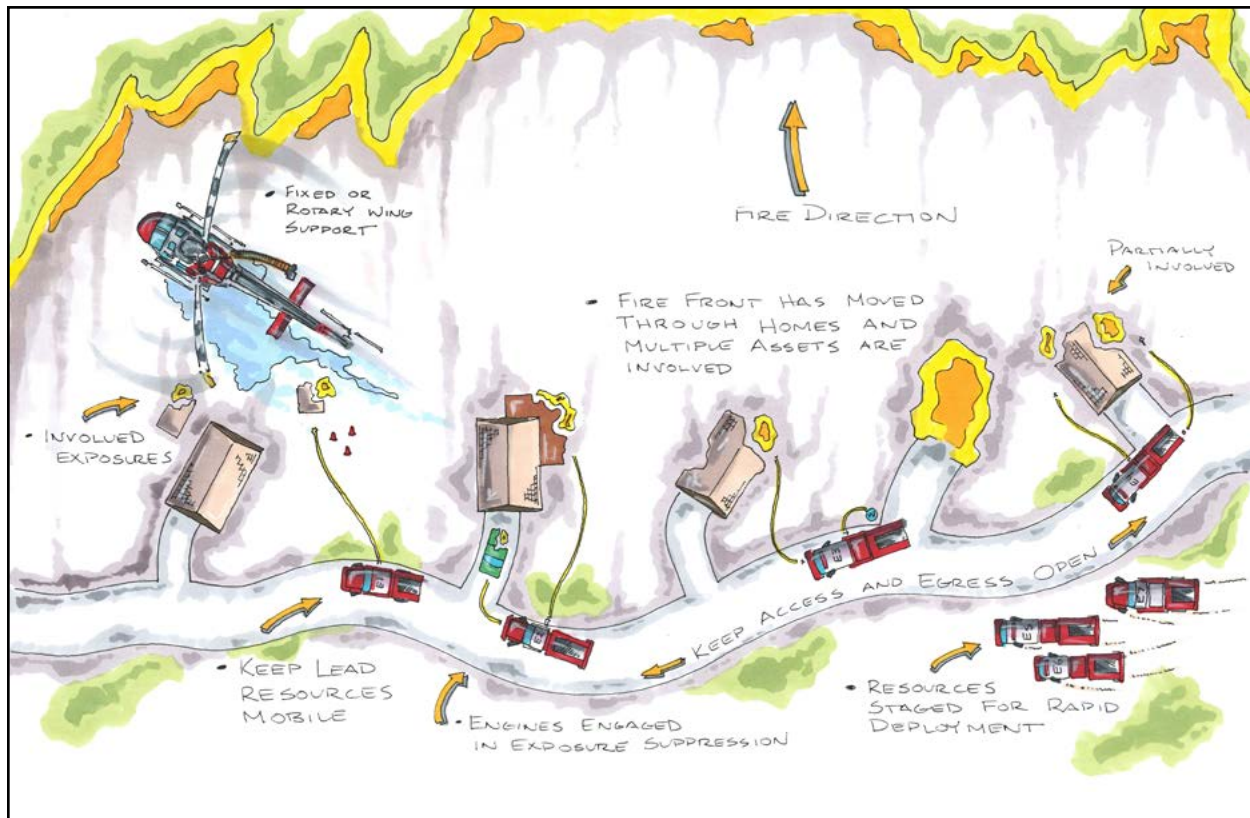 • FIXED OR
ROTARY WING
SUPPORT
FIRE DIRECTION
PARTIALLY
INVOLVED
• FIRE FRONT HAS MOVED
THROUGH HOMES AND
MULTIPLE ASSETS ARE
INVOLVED
• INVOLVED
EXPOSURES
KEEP ACCESS AND EGRESS OPEN
• KEEP LEAD
RESOURCES
MOBILE
• ENGINES ENGAGED
IN EXPOSURE SUPPRESSION
• RESOURCES
STAGED FOR RAPID
DEPLOYMENT
E1
E2
E3
E5
E7